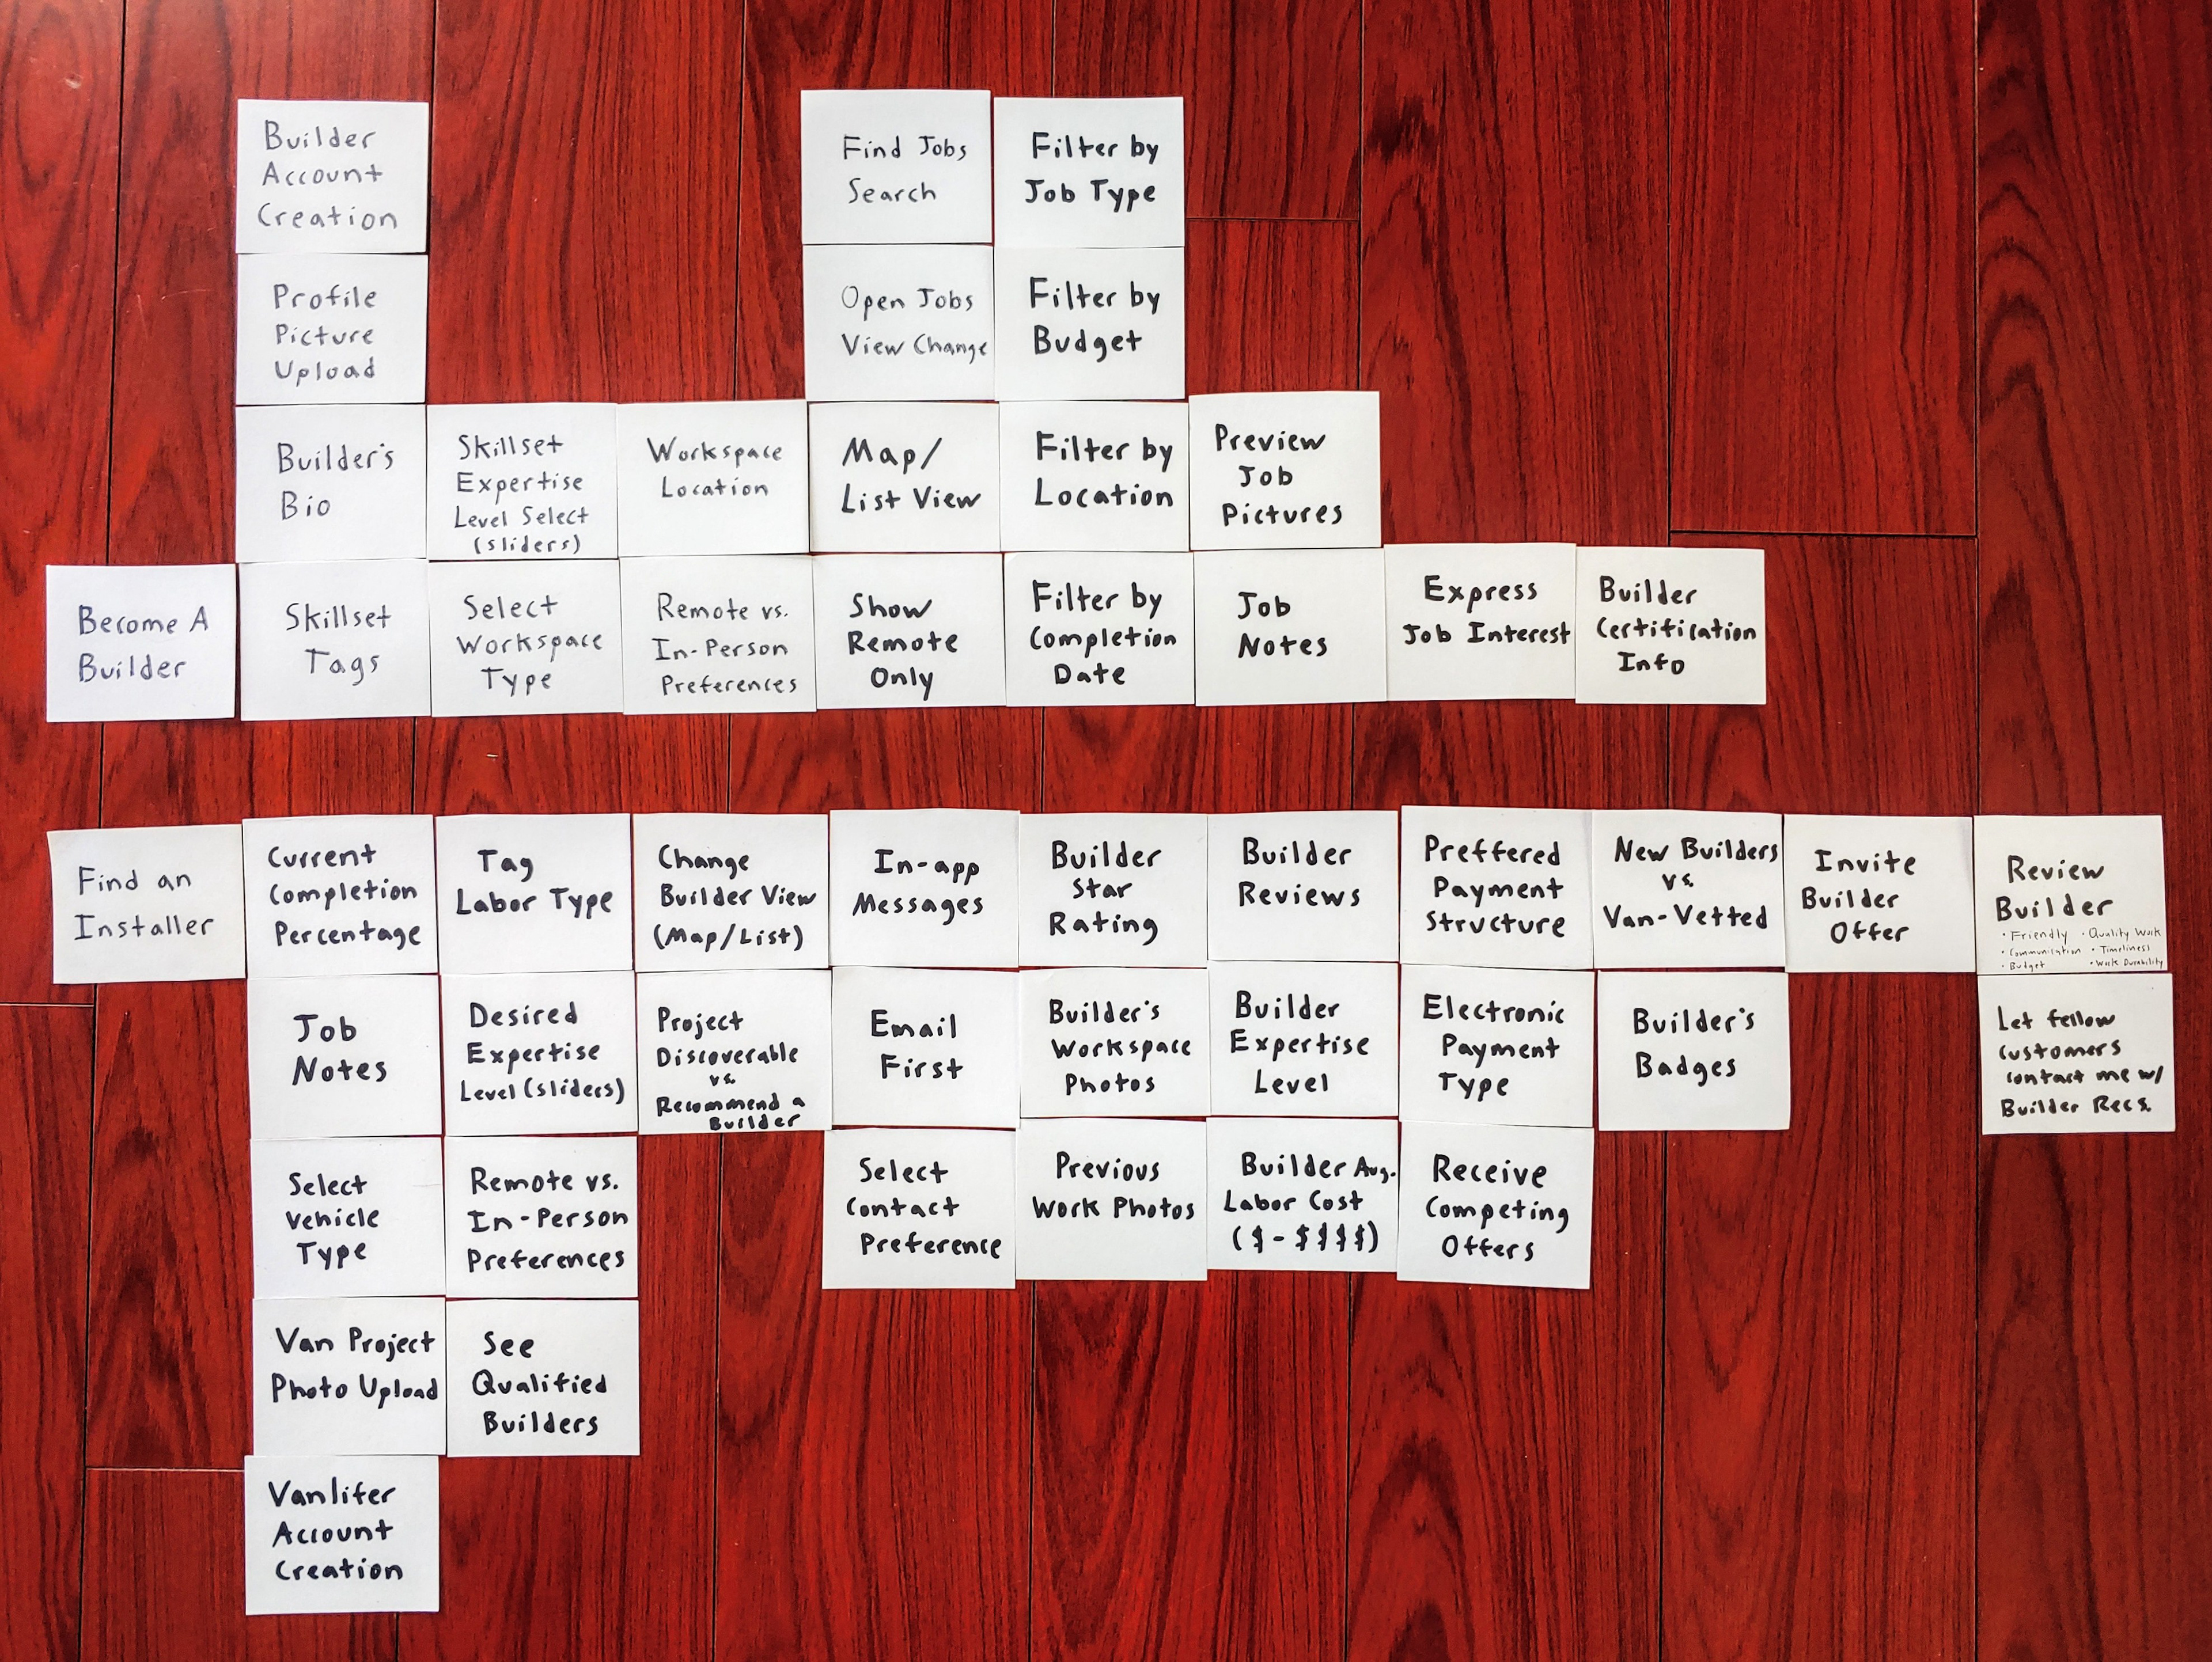 Builder
Account
Creation
Find Jobs
Search
Filter by
Job Type
Profile
Picture
Upload
Open Jobs
View Change
Filter by
Budget
Builder's
Bio
Skillset
Expertise
Level Select
(sliders)
Workspace
Location
Map/
List View
Filter by
Location
Preview
Job
Pictures
Become A
Builder
Skillset
Tags
Select
Workspace
Type
Remote vs.
In-Person
Preferences
Show
Remote
Only
Filter by
Completion
Date
Job
Notes
Express
Job Interest
Builder
Certification
Info
Find an
Installer
Current
Completion
Percentage
Tag
Labor Type
Change
Builder View
(Map/List)
In-app
Messages
Builder
Star
Rating
Builder
Reviews
Preffered
Payment
Structure
New Builders
vs.
Van-Vetted
Invite
Builder
Offer
Review
Builder
• Friendly • Quality Work
• Communication • Timeliness
• Budget • Work Durability
Job
Notes
Desired
Expertise
Level (sliders)
Project
Discoverable
vs.
Recommend a
Builder
Email
First
Builder's
Workspace
Photos
Builder
Expertise
Level
Electronic
Payment
Type
Builder's
Badges
Let fellow
customers
contact me w/
Builder Recs.
Select
Vehicle
Type
Remote vs.
In-Person
Preferences
Select
Contact
Preference
Previous
Work Photos
Builder Avg.
Labor Cost
($-$$$$)
Receive
Competing
Offers
Van Project
Photo Upload
See
Qualified
Builders
Vanlifer
Account
Creation